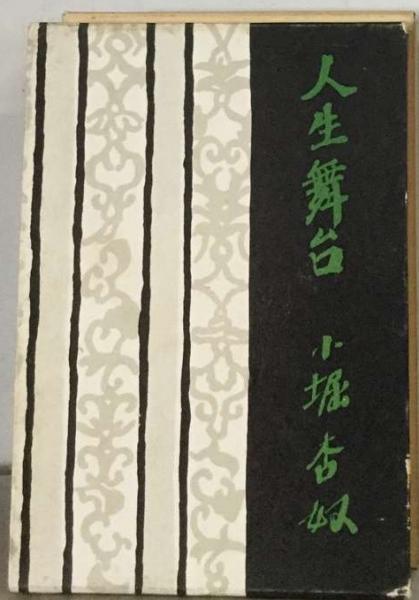 人生舞台
小堀杏奴